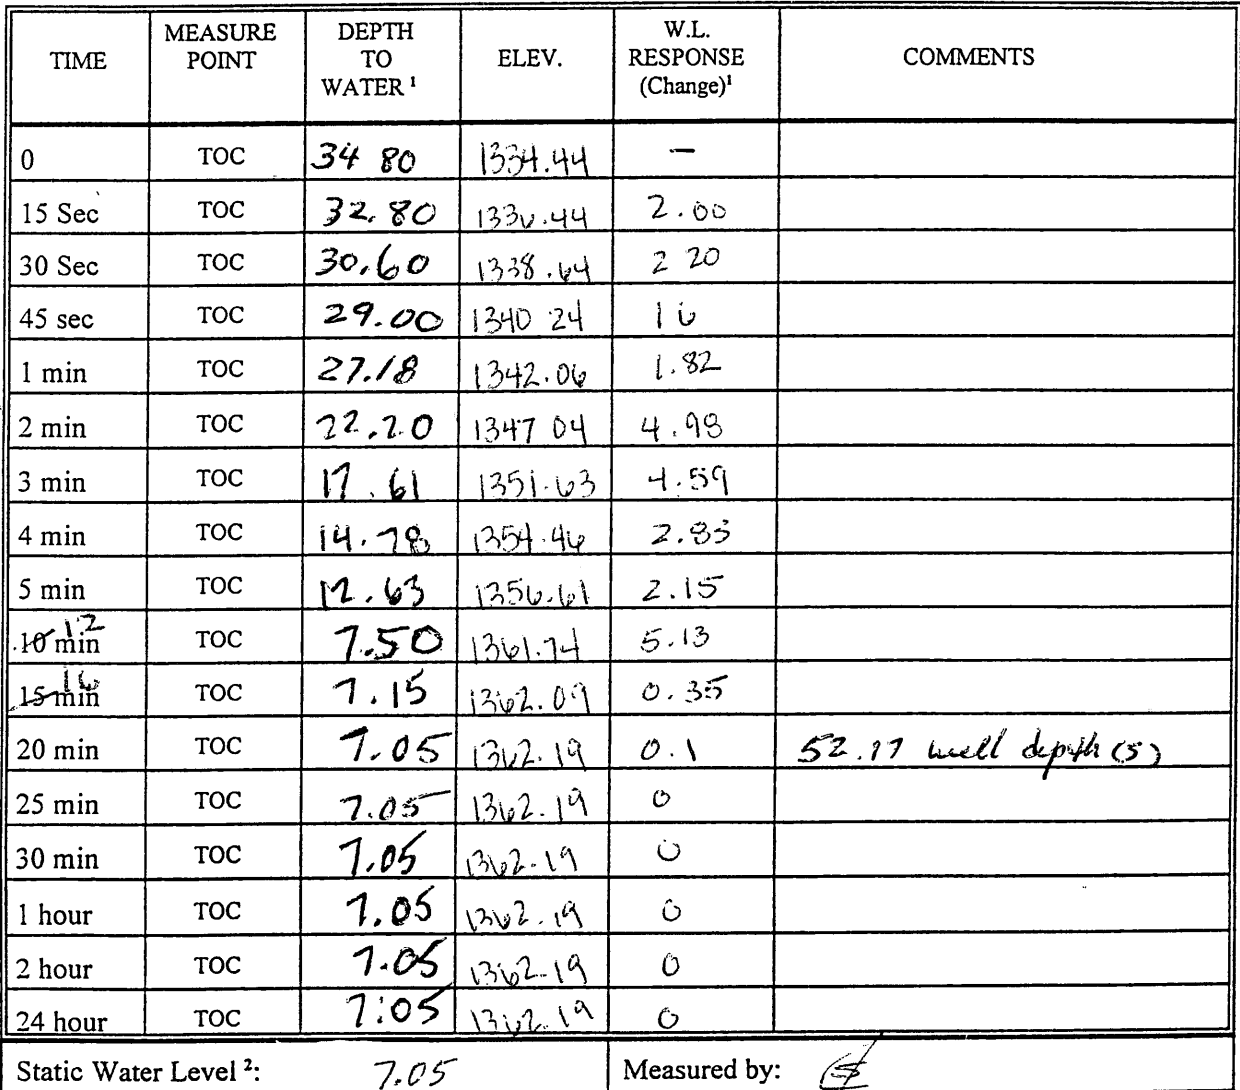 TIME MEASURE POINT DEPTH TO WATER ¹ ELEV. W.L. RESPONSE (Change)¹ COMMENTS
0 TOC 34 80 1334.44 —
15 Sec TOC 32.80 1336.44 2.00
30 Sec TOC 30.60 1338.64 2 20
45 sec TOC 29.00 1340 24 1 6
1 min TOC 27.18 1342.06 1.82
2 min TOC 22.20 1347 04 4.98
3 min TOC 17.61 1351.63 4.59
4 min TOC 14.78 1354.46 2.83
5 min TOC 12.63 1356.61 2.15
10 min 12 TOC 7.50 1361.74 5.13
15 min 16 TOC 7.15 1362.09 0.35
20 min TOC 7.05 1362.19 0.1 52.17 well depth (5)
25 min TOC 7.05 1362.19 0
30 min TOC 7.05 1362.19 0
1 hour TOC 7.05 1362.19 0
2 hour TOC 7.05 1362.19 0
24 hour TOC 7.05 1362.19 0
Static Water Level ²: 7.05 Measured by: